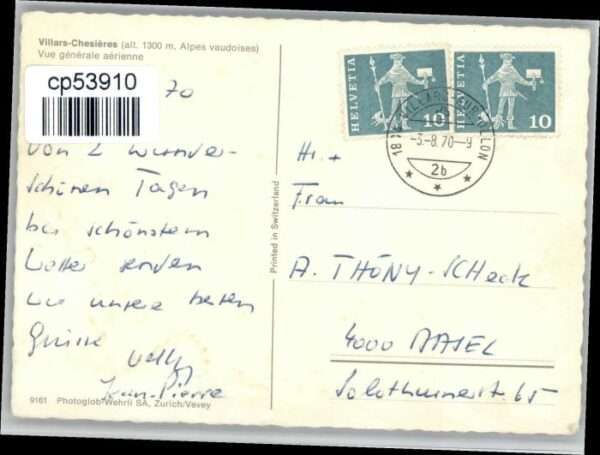 Villars-Chesières (alt. 1300 m, Alpes vaudoises)
Vue générale aérienne
cp53910
70
Von 2 wunder-
schönen Tagen
bei schönstem
Wetter senden
wir unsere besten
Grüsse
Jean-Pierre
9161 Photoglob-Wehrli SA, Zurich/Vevey
Printed in Switzerland
HELVETIA
10
HELVETIA
10
VILLARS-SUR-OLLON
-3.-8.70-9
2b
Hr. +
Frau
A. THÖNY-SCHeck
4000 BASEL
Solothurnerst. 65